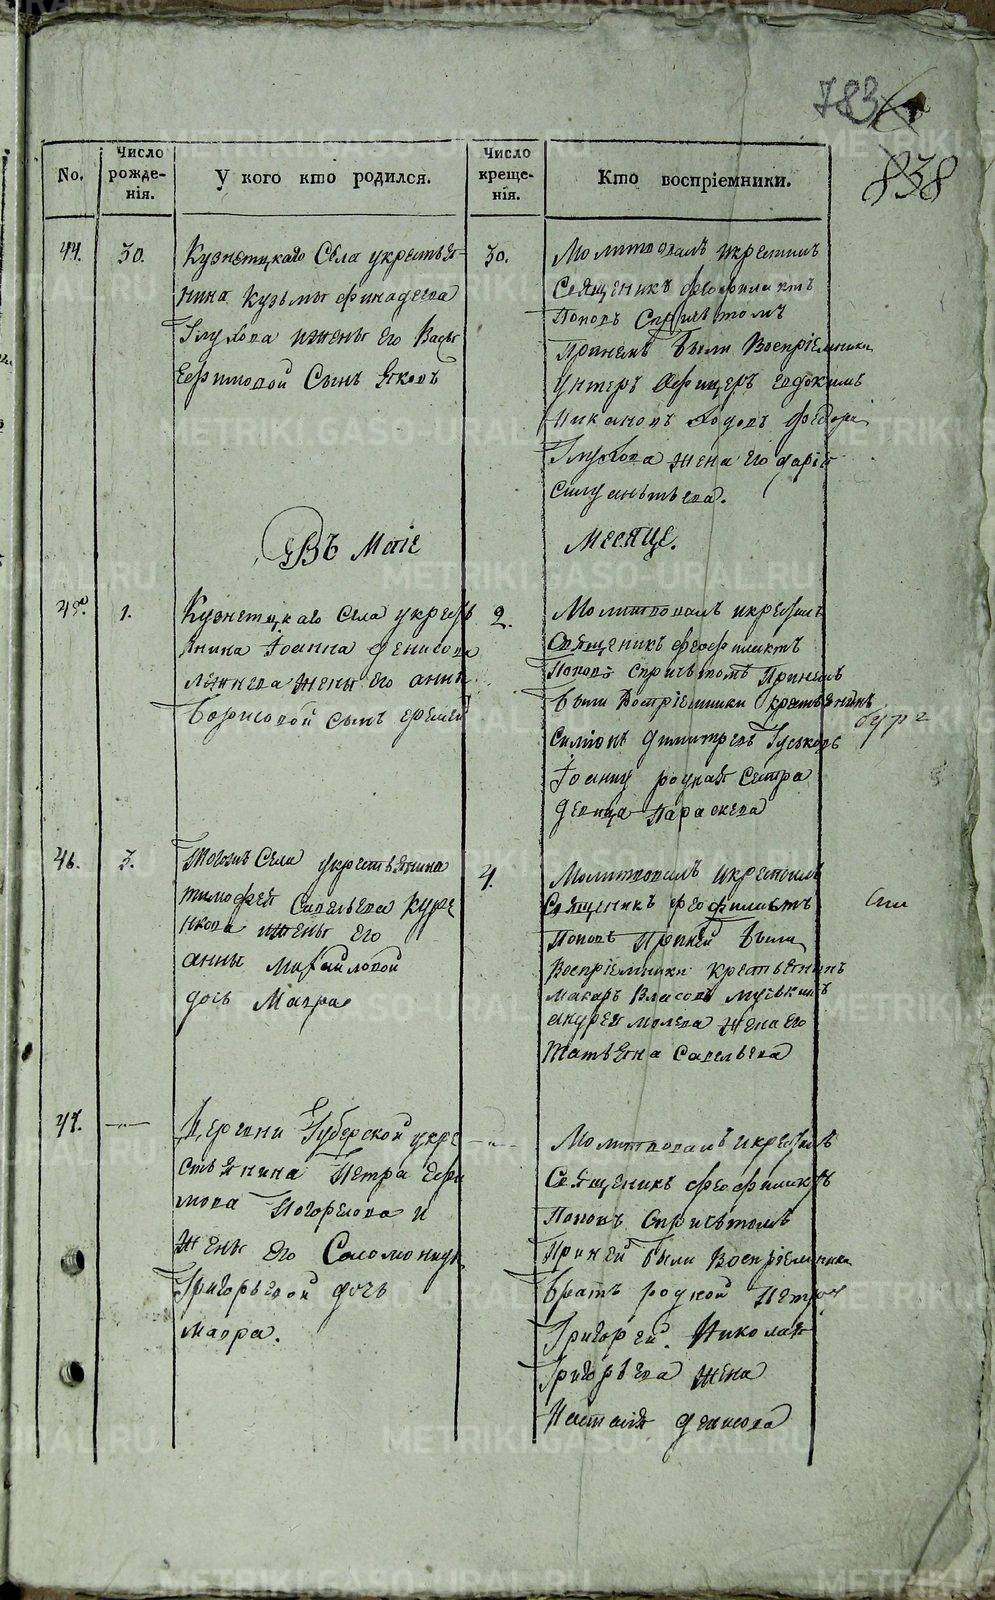 783
838
No.
Число рожде-нія.
У кого кто родился.
Число креще-нія.
Кто воспріемники.
44.
30.
Кузнетцкаго Села укрестья
нина Кузьмы финадеева
Глухова ижены его Васы
Ефимовой Сынъ Яковъ
30.
Молитвовалъ икрестилъ
Священикъ феофилактъ
Поповъ Спричьтомъ
Принемъ были Воспріемники
Унтеръ Афицеръ евдокимъ
Никановъ
Глухова жена его дарія
Силуаньтьева.
Въ Маіе
Месяце.
45.
1.
Кузнетцкаго Села укресть
янина Іоанна денисова
жены его анны
Борисовой сынъ еремей
2.
Молитвовалъ икрестилъ
Священикъ феофилактъ
Поповъ спричьтомъ Принемъ
были Воспріемники крестьянинъ
Симіонъ димитревъ Гуськовъ
Іоанну родная Сестра
девица Параскева
46.
3.
Тогожъ Села укрестьянина
тимофея Савельева Куре
нкова ижены его
анны Михайловой
дочь Мавра
4.
Молитвовалъ икрестилъ
Священикъ феофилактъ
Поповъ Приней были
Воспріемники Крестьянинъ
макаръ Власовъ
андрея жена его
Татьяна Савельева
47.
—„—
Деревни Губерской укре
стьянина Петра Ефи
мова Погорелова и
жены его Соломониды
Григорьевой дочь
мавра.
—„—
Молитвовалъ икрестилъ
Священикъ феофилактъ
Поповъ Спричьтомъ
Приней были Воспріемники
братъ родной Петру
Григорей. Николая
Григорьева жена
Наталія денисова